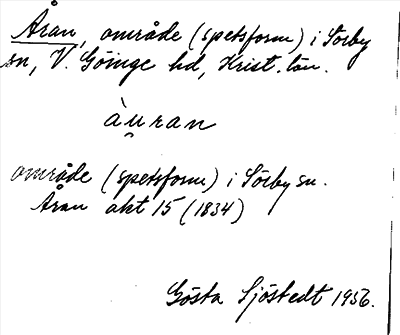 Åran, område (spetsform) i Sörby
sn, V. Göinge hd, Krist. län.
àu̯ran
område (spetsform) i Sörby sn.
Åran akt 15 (1834)
Gösta Sjöstedt 1936.